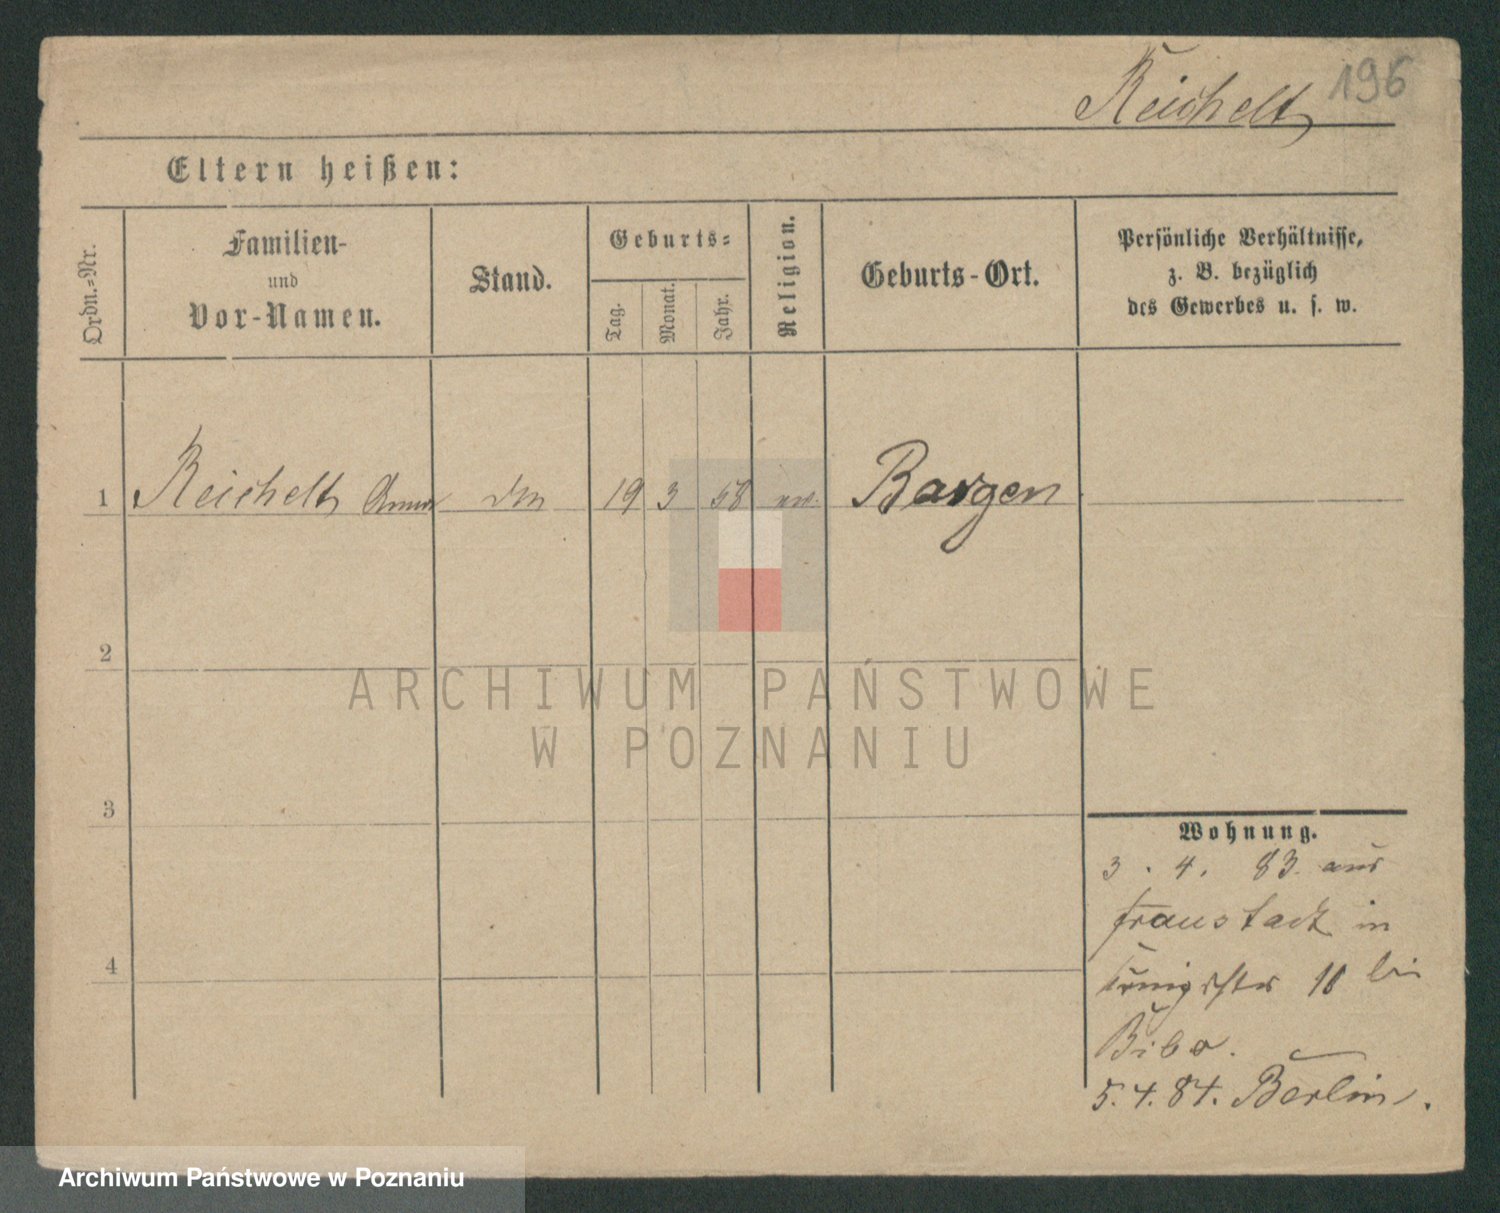 Reichelt 196
Eltern heißen:
Ordn.=Nr.
Familien-
und
Vor-Namen.
Stand.
Geburts=
Tag.
Monat.
Jahr.
Religion.
Geburts-Ort.
Persönliche Verhältnisse,
z. B. bezüglich
des Gewerbes u. s. w.
1 Reichelt Anna 19 3 58 Bargen
2
3
4
ARCHIWUM PAŃSTWOWE
W POZNANIU
Wohnung.
3. 4. 83. aus
Fraustadt in
18 bei
5. 4. 84. Berlin.
Archiwum Państwowe w Poznaniu